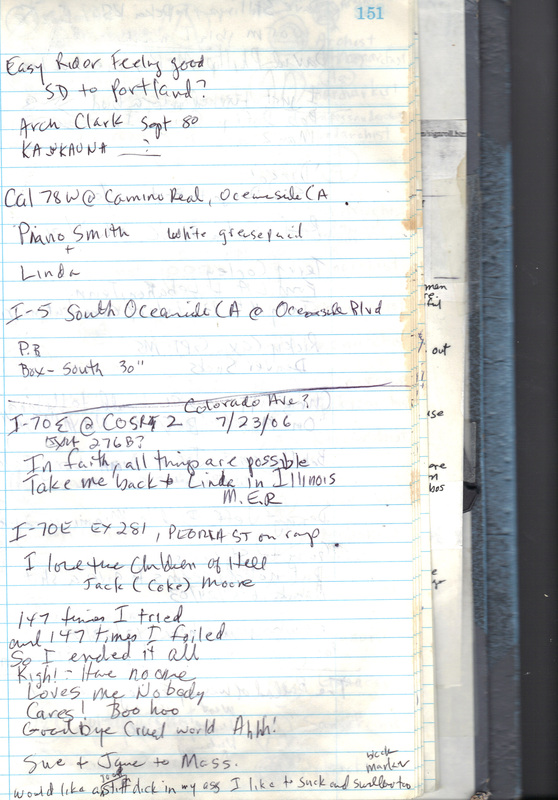 151
Easy Rider Feeling good
SD to Portland?
Arch Clark Sept 80
KAUKAUNA ?
Cal 78W @ Camino Real, Oceanside CA.
Piano Smith White greasepaid
+
Linda
I-5 South Oceanside CA @ Oceanside Blvd
P.B
Box - South 30"
Colorado Ave?
I-70E @ COSR 2 7/23/06
Exit 276B?
In faith, all things are possible
Take me back to Linda in Illinois
M.E.R
I-70E EX 281, PEORIA ST on ramp.
I love the Children of Hell
Jack (Coke) Moore
147 times I tried
and 147 times I failed
So I ended it all
Right - Have no one
Loves me Nobody
Cares! Boo hoo
Goodbye Cruel world Ahhh!
Sue + Jane to Mass.
black
marker
good
Would like a stiff dick in my ass I like to suck and swallow too
men
out
use
are
m
bos